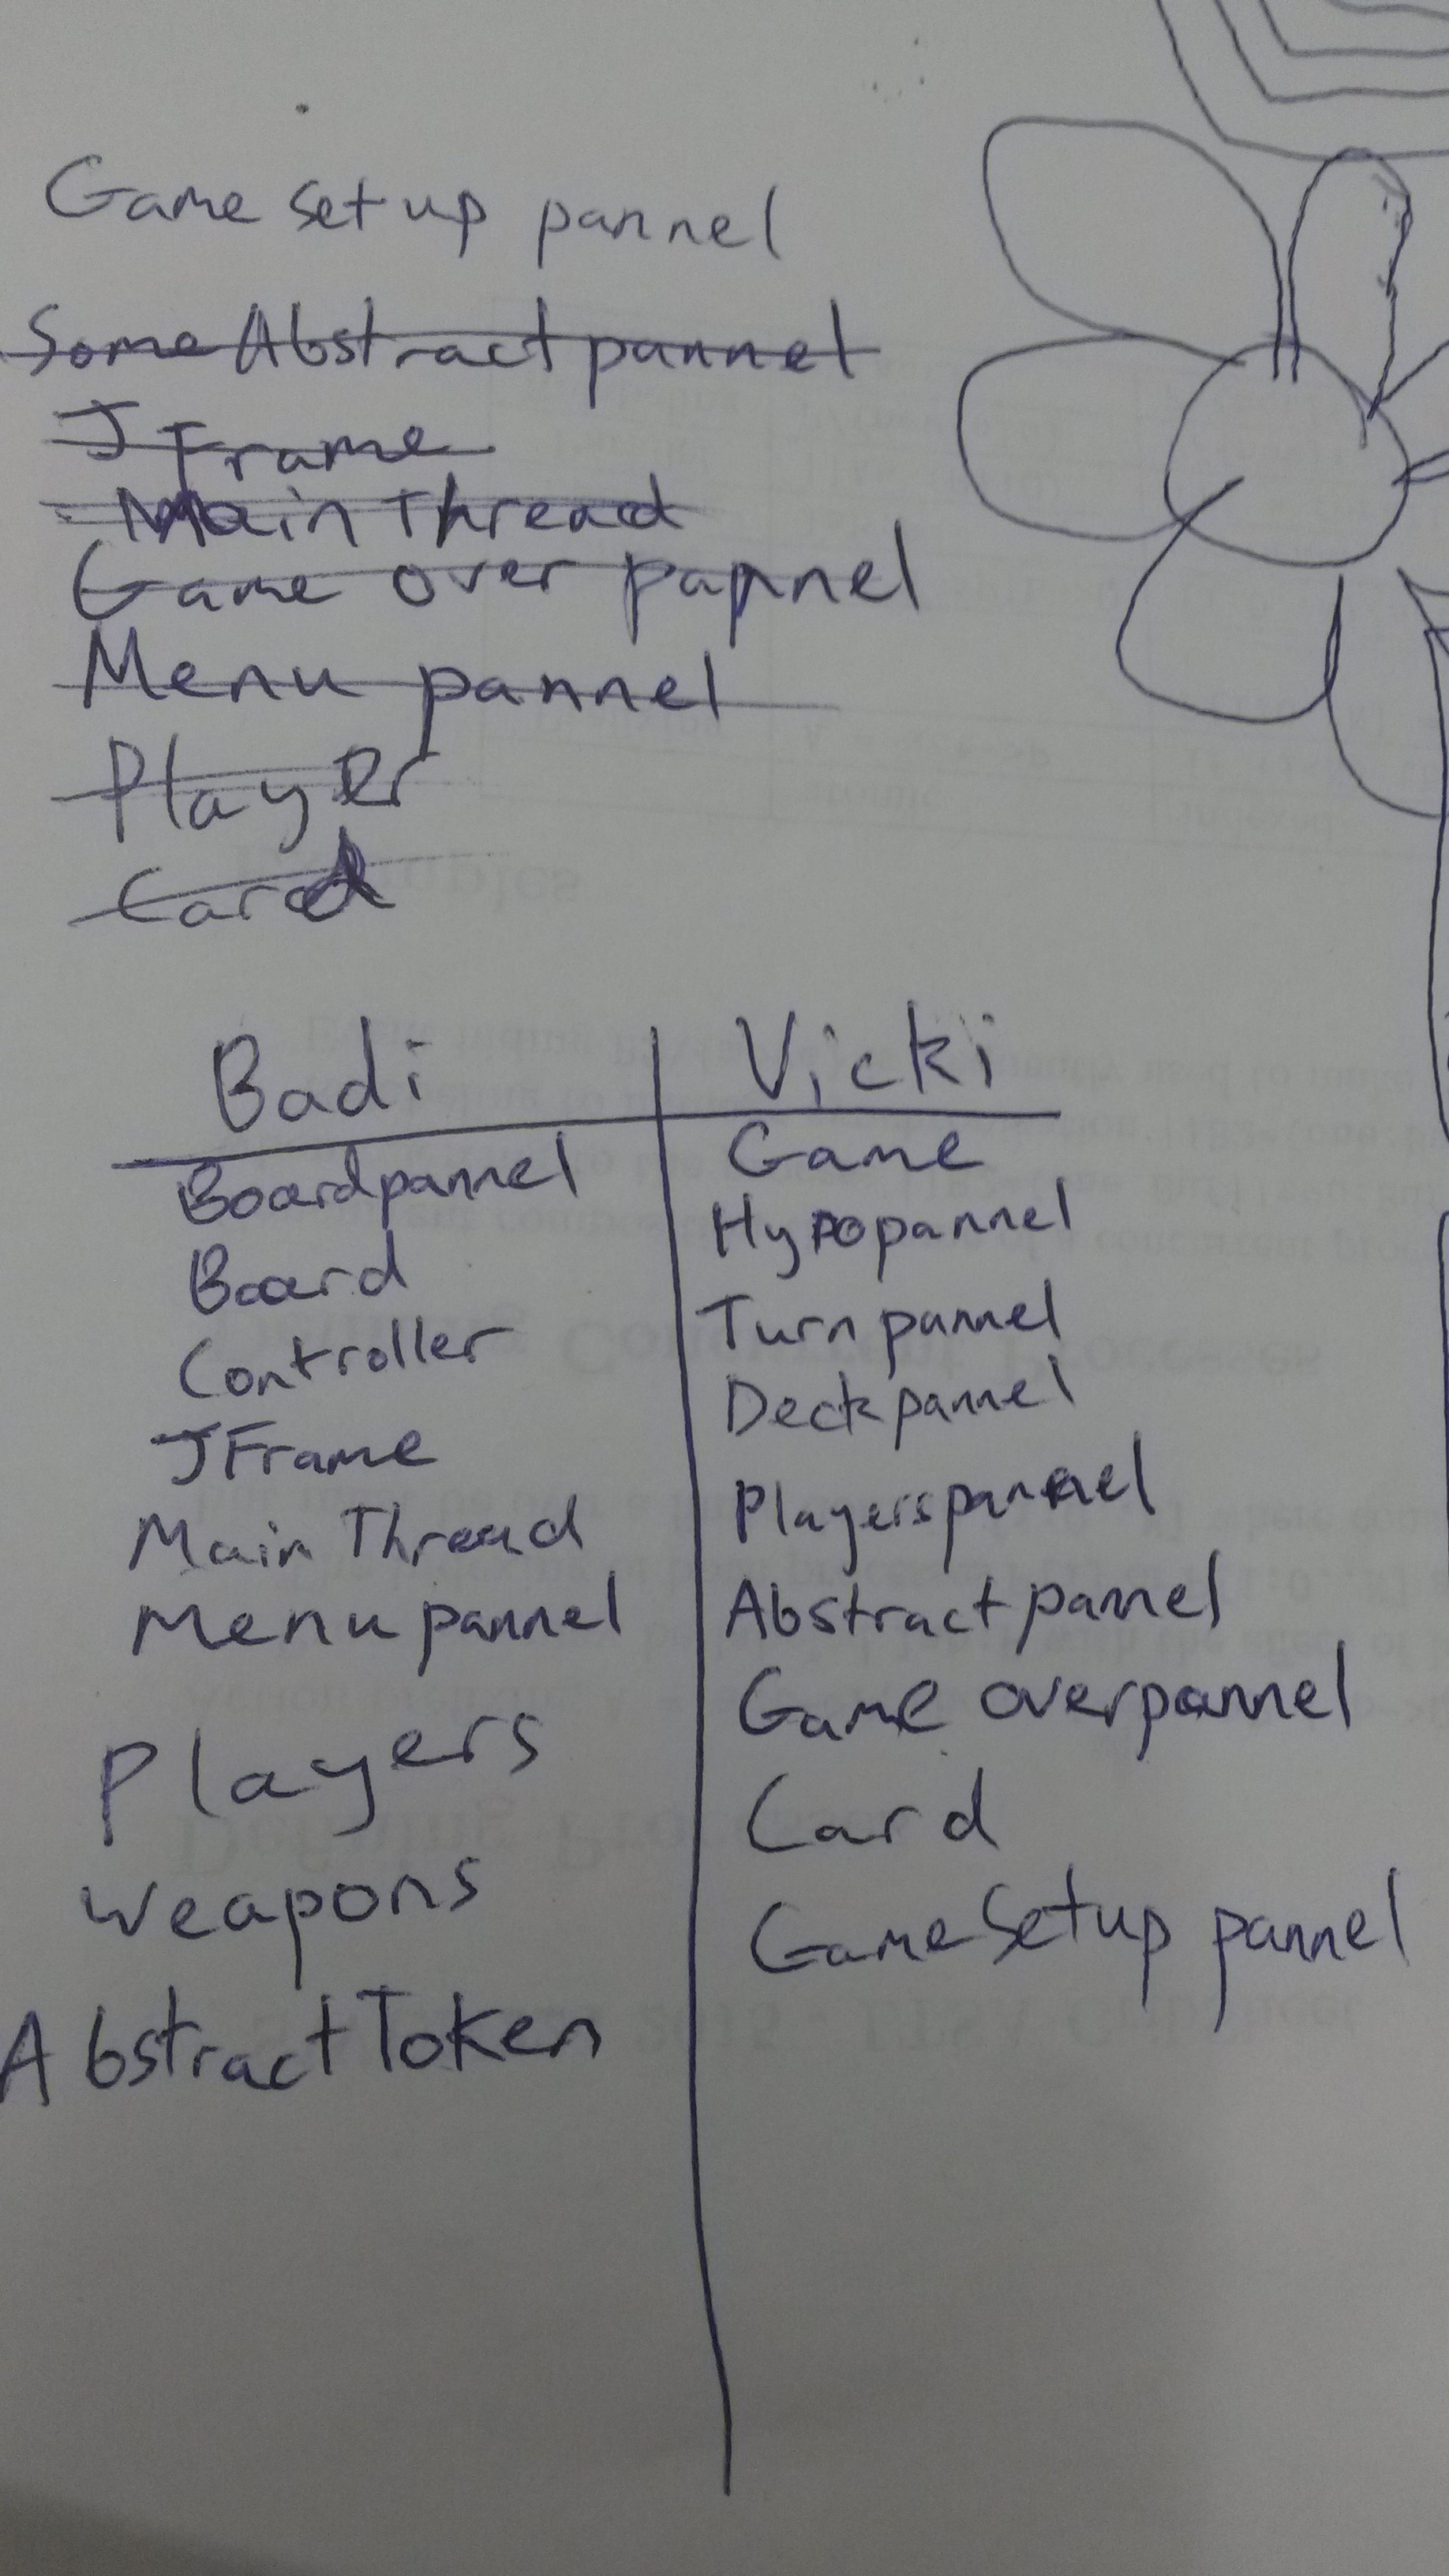 Game setup pannel
Some Abstract pannel
JFrame
Main Thread
Game over pannel
Menu pannel
Player
Card
Badi
Vicki
Boardpannel
Game
Board
Hypopannel
Controller
Turnpannel
JFrame
Deckpannel
Main Thread
Playerspannel
Menupannel
Abstractpannel
Players
Game overpannel
Weapons
Card
AbstractToken
GameSetup pannel